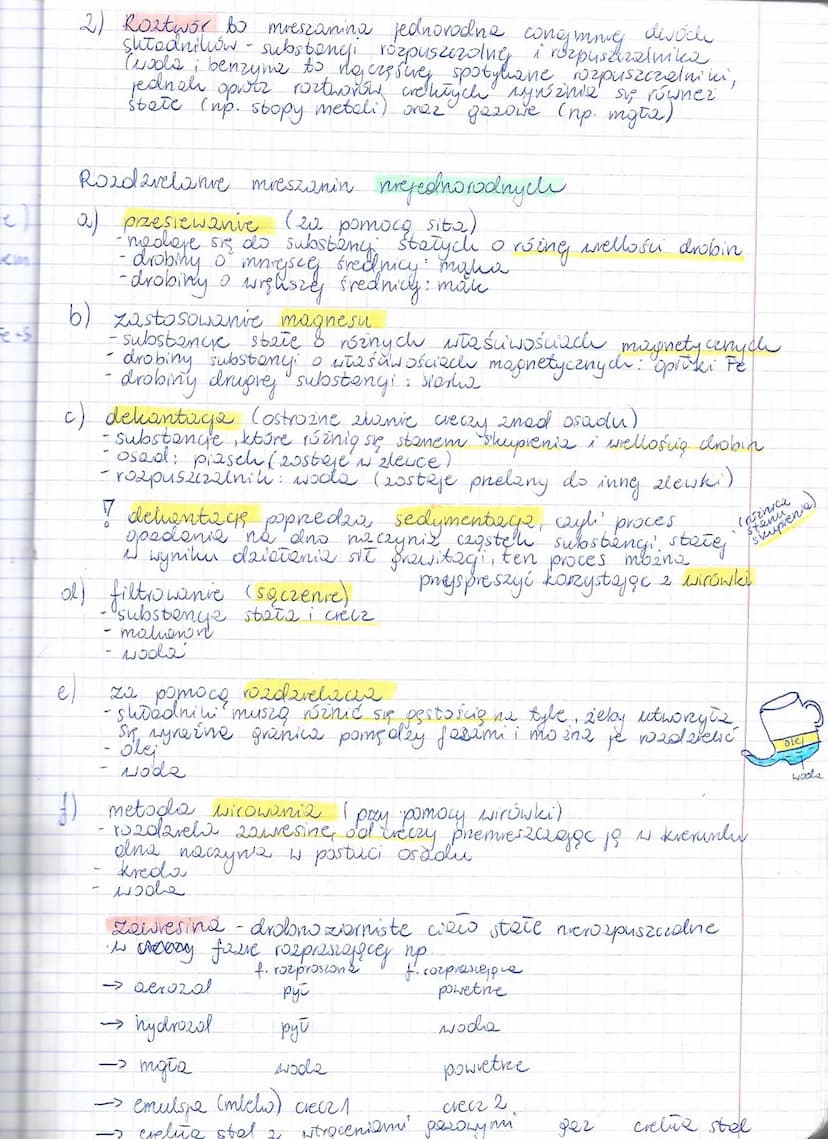 2) Roztwór to mieszanina jednorodna conajmniej dwóch
składników - substancji rozpuszczalnej i rozpuszczalnika
(woda i benzyna to najczęściej spotykane rozpuszczalniki,
jednak oprócz roztworów ciekłych wyróżnia się również
stałe (np. stopy metali) oraz gazowe (np. mgła)
Rozdzielanie mieszanin niejednorodnych
a) przesiewanie (za pomocą sita)
- nadaje się do substancji stałych o różnej wielkości drobin
- drobiny o mniejszej średnicy: mąka
- drobiny o większej średnicy: mak
b) zastosowanie magnesu
- substancje stałe o różnych właściwościach magnetycznych
- drobiny substancji o właściwościach magnetycznych: opiłki Fe
- drobiny drugiej substancji: siarka
c) dekantacja (ostrożne zlanie cieczy znad osadu)
- substancje, które różnią się stanem skupienia i wielkością drobin
- osad: piasek (zostaje w zlewce)
- rozpuszczalnik: woda (zostaje przelany do innej zlewki)
! dekantację poprzedza sedymentacja, czyli proces
opadania na dno naczynia cząstek substancji stałej
(różnica stanu skupienia)
w wyniku działania sił grawitacji, ten proces można
przyspieszyć korzystając z wirówki
d) filtrowanie (sączenie)
- substancja stała i ciecz
- makaron
- woda
e) za pomocą rozdzielacza
- składniki muszą różnić się gęstością na tyle, żeby utworzyła
się wyraźna granica pomiędzy fazami i można je rozdzielić
- olej
- woda
olej
woda
f) metoda wirowania (przy pomocy wirówki)
- rozdziela zawiesinę od cieczy przemieszczając ją w kierunku
dna naczynia w postaci osadu
- kreda
- woda
zawiesina - drobnoziarniste ciało stałe nierozpuszczalne
w fazie rozpraszającej np
f. rozproszona f. rozpraszająca
→ aerozol pył powietrze
→ hydrozol pył woda
→ mgła woda powietrze
→ emulsja (mleko) ciecz 1 ciecz 2
→ ciekła stal z wtrąceniami gazowymi gaz ciekła stal